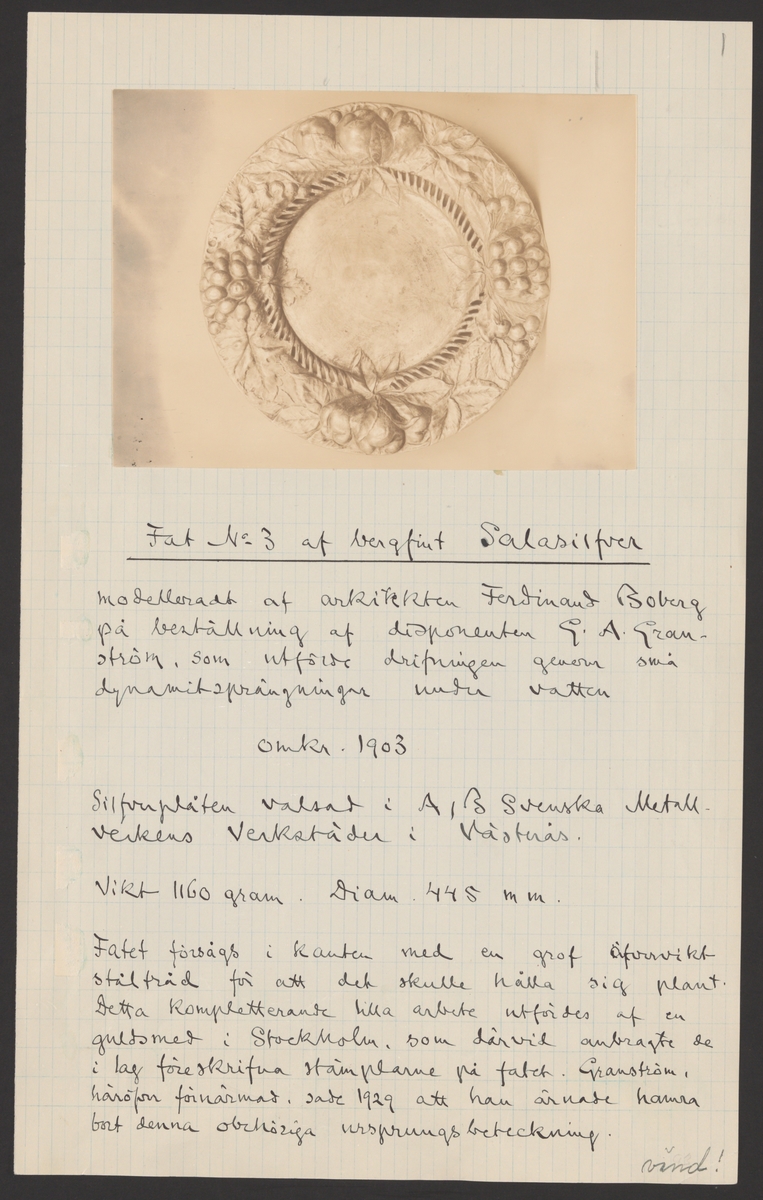 1
Fat No 3 af bergfint Salasilfver
modelleradt af arkitekten Ferdinand Boberg
på beställning af disponenten G. A. Gran-
ström, som utförde drifningen genom små
dynamitsprängningar under vatten
omkr. 1903
Silfverplåten valsad i A/B Svenska Metall-
verkens Verkstäder i Västerås.
Vikt 1160 gram. Diam. 445 mm.
Fatet försågs i kanten med en grof öfvervikt
ståltråd för att det skulle hålla sig plant.
Detta kompletterande lilla arbete utfördes af en
guldsmed i Stockholm, som därvid anbragte de
i lag föreskrifna stämplarne på fatet. Granström,
häröfver förnärmad, sade 1929 att han ärnade hamra
bort denna obehöriga ursprungsbeteckning.
vänd!